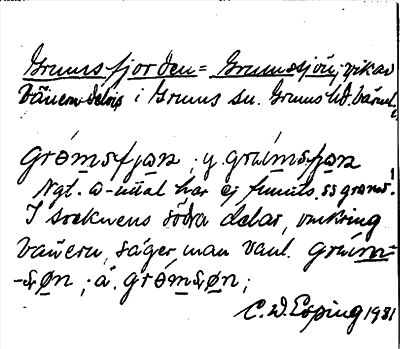 Grums-fjorden = Grumssjön, vik av
Vänern delvis i Grums sn. Grums hd. Värml.
grómsfjan ; y. grúmsfjan
Ngt. a-uttal har ej funnits, ss grams!
I socknens södra delar, omkring
Vänern, säger man vanl. grúm-
-søn ; ä. grómsøn ;
C. W. Esping 1931